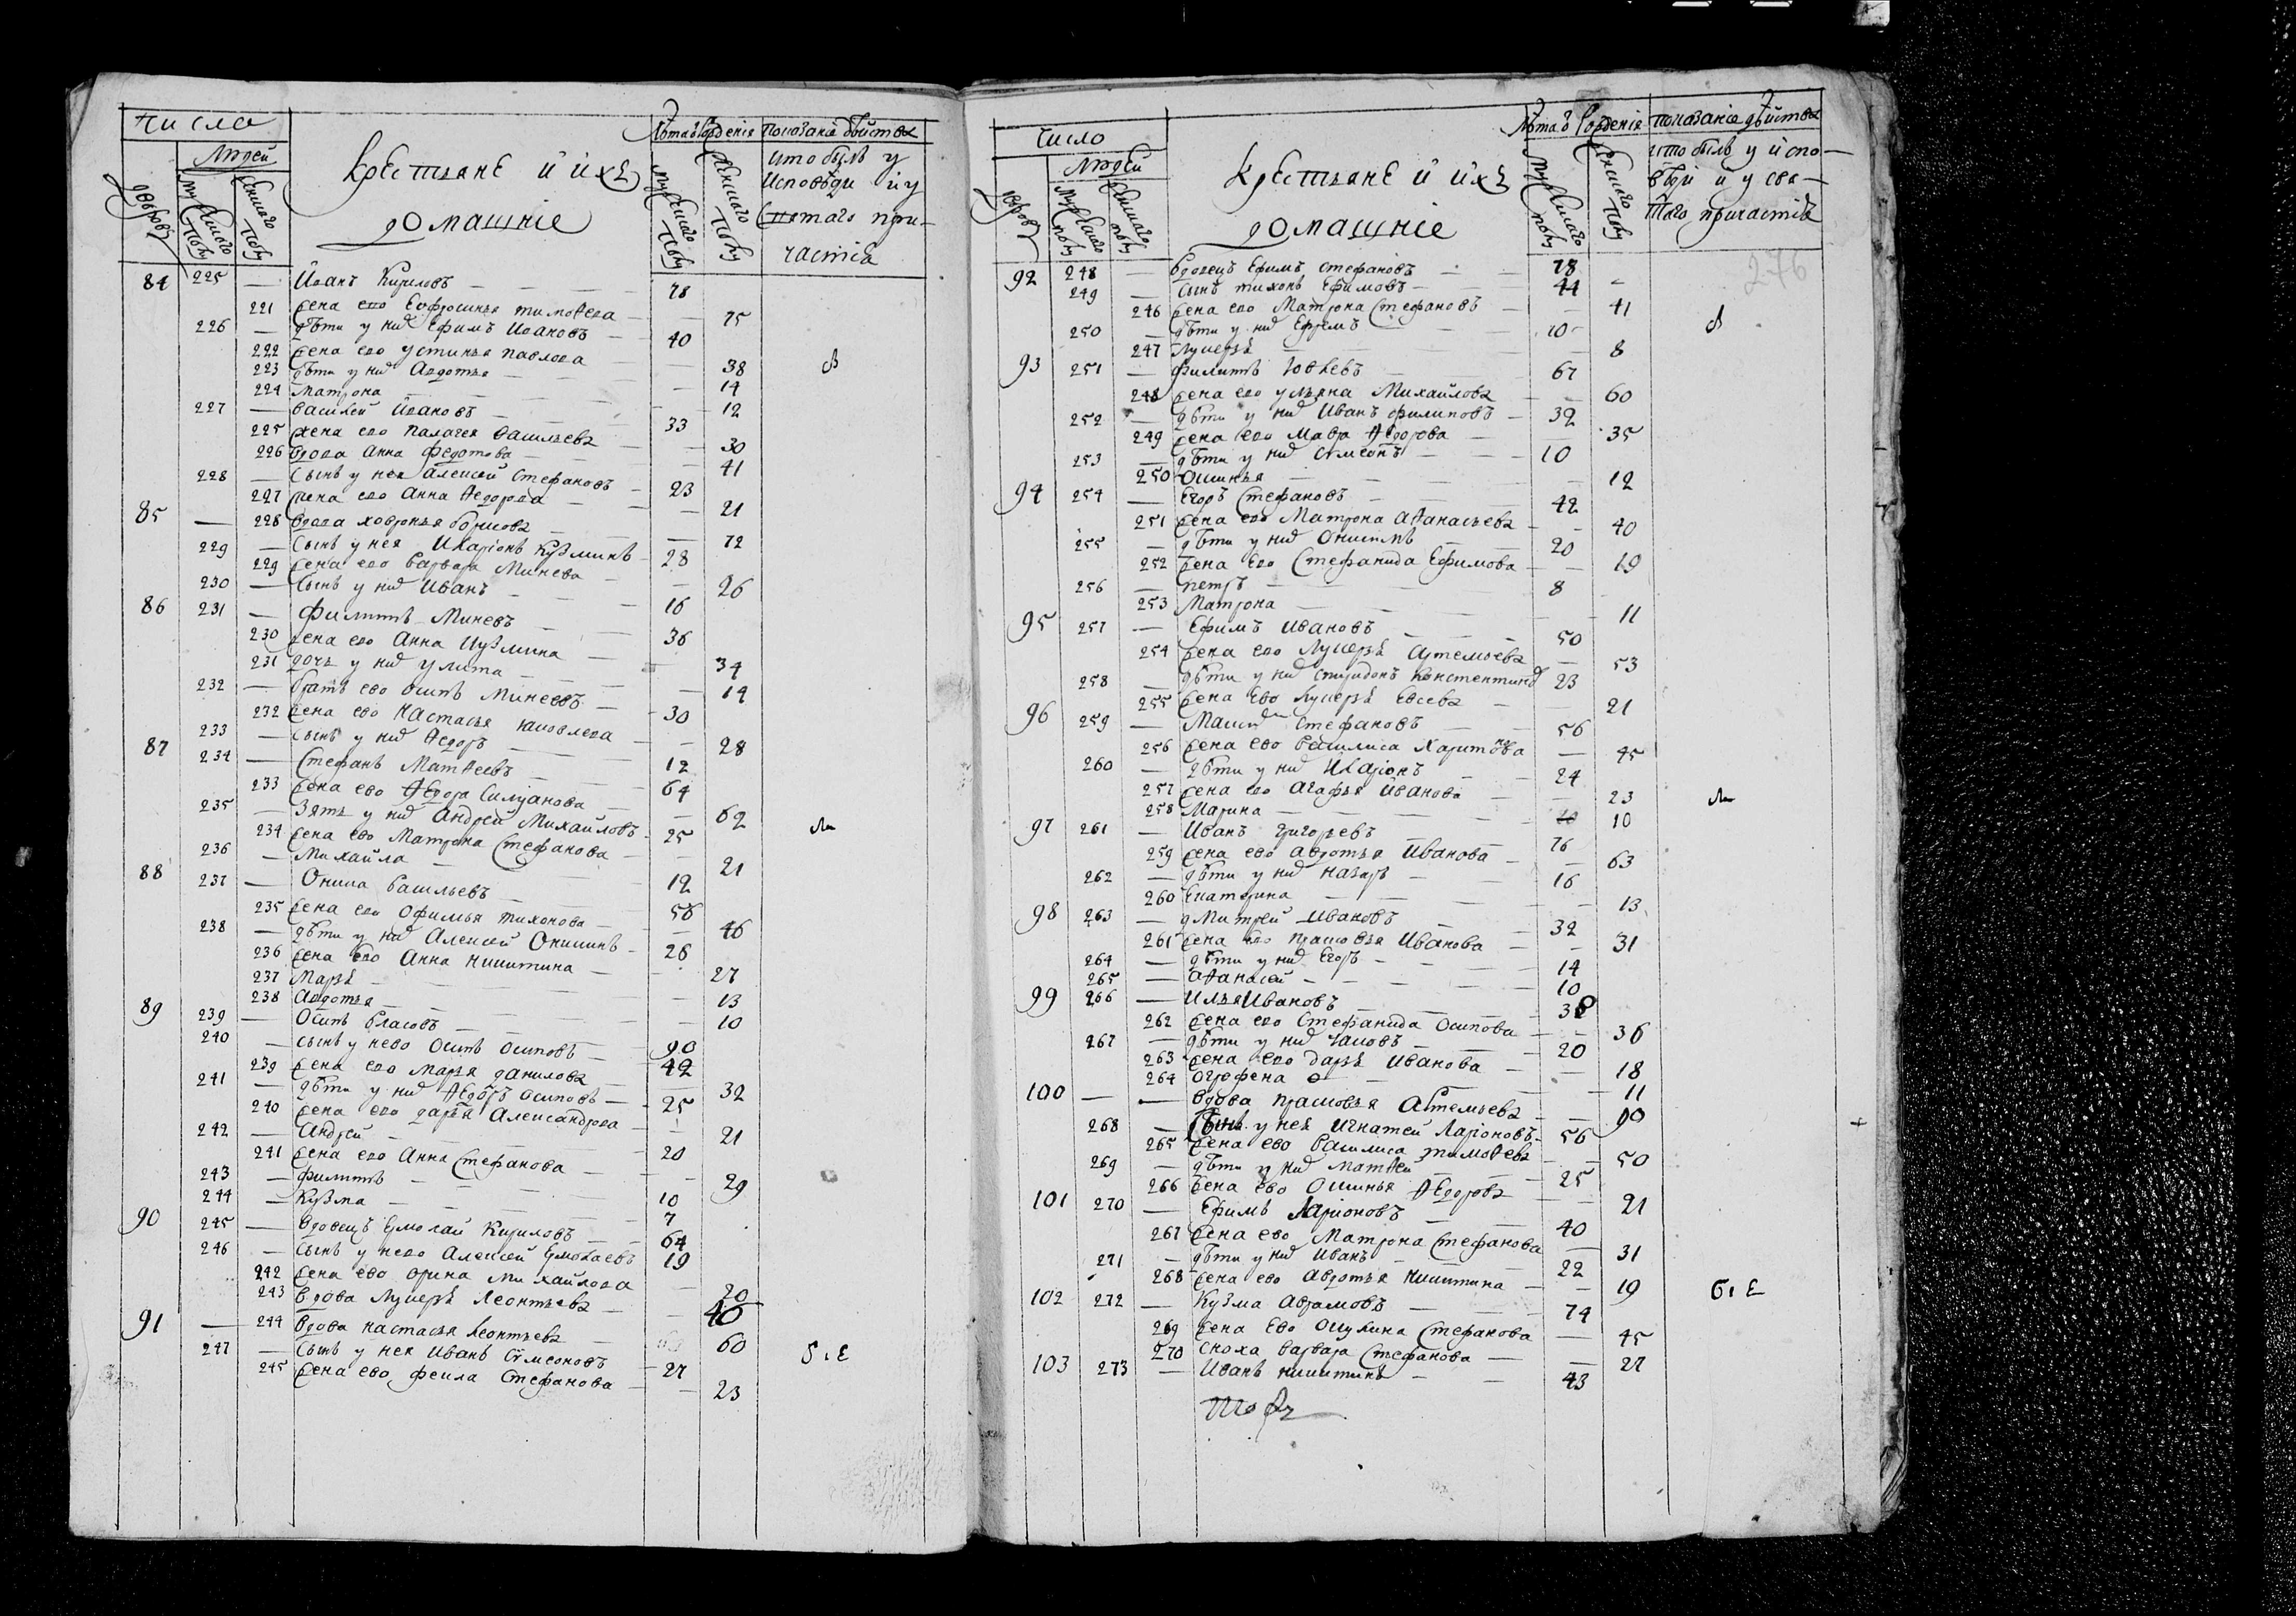 Числа
Людей
Крестьяне и ихъ
домашніе
Лѣта рожденія
показаніе дѣйства
кто былъ у
исповѣди и у
святаго при-
частія
дворовъ
мужеска полу
женска полу
мужеска полу
женска полу
84 225 — Иванъ Кириловъ — 78
221 жена ево Евфросинья тимоѳеева — 75
226 — дѣти у них Ефимъ Ивановъ — 40
222 жена ево устинья павлова — 38 в
223 дѣти у них Авдотья — 14
224 Матрона — 12
227 — василей Ивановъ — 33
225 жена ево палагея васильева — 30
226 вдова Анна Федотова — 41
228 — сынъ у нея Алексей Стефановъ — 23
227 жена ево Анна Ѳедорова — 21
85 — 228 вдова ховронья борисова — 72
229 — сынъ у нея Иларіонъ Кузминъ — 28
229 жена ево варвара Минева — 26
230 — сынъ у них Иванъ — 16
86 231 — филиппъ Миневъ — 36
230 жена ево Анна Кузмина — 34
231 дочь у них улита — 14
232 — братъ ево осипъ Минеевъ — 30
232 жена ево Настасья яковлева — 28
233 — сынъ у них Ѳедоръ — 12
87 234 — Стефанъ Матѳеевъ — 64
233 жена ево Ѳедора Силуанова — 62
235 — зять у них Андрей Михайловъ — 25
234 жена ево Матрона Стефанова — 21
236 — Михайла — 12
88 237 — Оника васильевъ — 56
235 жена ево Офимья тихонова — 46
238 — дѣти у них Алексей Оникинъ — 26
236 жена ево Анна Никитина — 27
237 Марья — 13
238 Авдотья — 10
89 239 — Осипъ власовъ — 90
240 — сынъ у нево Осипъ осиповъ — 42
239 жена ево Марья данилова — 32
241 — дѣти у них Ѳедоръ осиповъ — 25
240 жена ево дарья Александрова — 21
242 — Андрей — 20
241 жена ево Анна Стефанова — 29
243 — филиппъ — 10
244 — Кузма — 7
90 245 — вдовецъ Ермолай Кириловъ — 64
246 — сынъ у нево Алексей Ермолаевъ — 19
242 жена ево орина михайлова — 20
243 вдова Лукерья Леонтьева — 40
91 — 244 вдова настасья Леонтьева — 60
247 — сынъ у нея Иванъ Симеоновъ — 27
245 жена ево фекла Стефанова — 23
число
Людей
Крестьяне и ихъ
домашніе
Лѣта рожденія
показаніе дѣйства
кто былъ у испо-
вѣди и у свя-
таго причастія
дворовъ
мужеска полу
женска полу
мужеска полу
женска полу
276
92 248 — вдовецъ Ефимъ стефановъ — 78
249 — сынъ тихонъ Ефимовъ — 44
246 жена ево Матрона Стефановъ — 41
250 — дѣти у них Ефремъ — 10 в
247 Лукерья — 8
93 251 — филиппъ Юевъ — 67
248 жена ево ульяна Михайлова — 60
252 — дѣти у них Иванъ филиповъ — 32
249 жена ево Мавра Ѳедорова — 35
253 — дѣти у них Симеонъ — 10
250 Осинья — 12
94 254 — Егоръ Стефановъ — 42
251 жена ево Матрона Аѳанасьева — 40
255 — дѣти у них Онисимъ — 20
252 жена ево Стефанида Ефимова — 19
256 — петръ — 8
253 Матрона — 11
95 257 — Ефимъ Ивановъ — 50
254 жена ево Лукерья Артемьева — 53
258 — дѣти у них спиридонъ Констентинъ 23
255 жена ево Лукерья Евсева — 21
96 259 — Максим стефановъ — 56
256 жена ево василиса Харитонова — 45
260 — дѣти у них Иларіонъ — 24
257 жена ево Агафья Иванова — 23
258 Марина — 10
97 261 — Иванъ григорьевъ — 76
259 жена ево Авдотья Иванова — 63
262 — дѣти у них назаръ — 16
260 Екатерина — 13
98 263 — дмитрей Ивановъ — 32
261 жена ево прасковья Иванова — 31
264 — дѣти у них Егоръ — 14
265 — Аѳанасей — 10
99 266 — Илья Ивановъ — 38
262 жена ево Стефанида Осипова — 36
267 — дѣти у них яковъ — 20
263 жена ево дарья Иванова — 18
264 Огрофена — 11
100 — — вдова прасковья Артемьева — 90
268 — сынъ у нея Игнатей Ларіоновъ — 56
265 жена ево василиса тимоѳева — 50
269 — дѣти у них Матѳей — 25
266 жена ево Осинья Ѳедорова — 21
101 270 — Ефимъ Ларіоновъ — 40
267 жена ево Матрона Стефанова — 31
271 — дѣти у них Иванъ — 22
268 жена ево Авдотья Никитина — 19
102 272 — Кузма Аврамовъ — 74
269 жена ево Окулина Стефанова — 45
270 сноха варвара Стефанова — 27
103 273 — Иванъ никитинъ — 43